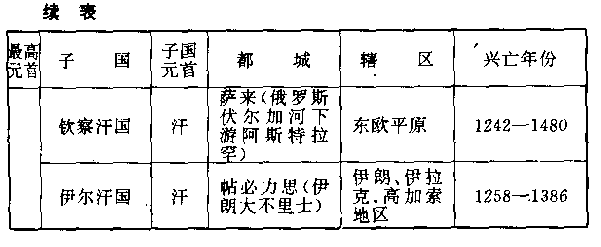 续表
最高元首 子国 子国元首 都城 辖区 兴亡年份
钦察汗国 汗 萨来(俄罗斯伏尔加河下游阿斯特拉罕) 东欧平原 1242—1480
伊尔汗国 汗 帖必力思(伊朗大不里士) 伊朗、伊拉克、高加索地区 1258—1386